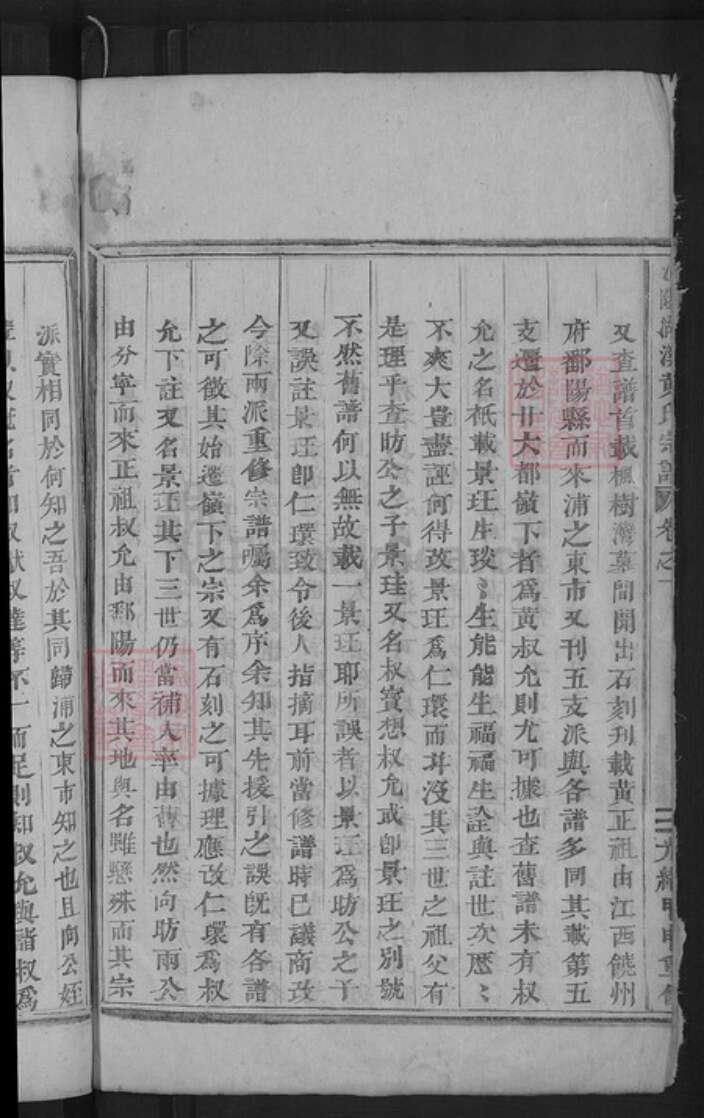 溪黃氏宗譜 卷之一 三 光緒甲申重修
又查譜首載楓樹灣墓間開出石刻刋載黃正祖由江西饒州
府鄱陽縣而來浦之東市又刊五支派與各譜多同其載第五
支遷於廿大都嶺下者爲黃叔允則尤可據也查舊譜未有叔
允之名祇載景玨生琰〻生能能生福福生詮與註世次歷〻
不爽大豈盡誣何得攺景玨爲仁環而幷沒其三世之祖父有
是理乎查昉公之子景珪又名叔實想叔允或卽景玨之別號
不然舊譜何以無故載一景玨耶所誤者以景玨爲昉公之子
又誤註景玨卽仁環致令後人指摘耳前當修譜時已議商攺
今除兩派重修宗譜囑余爲序余知其先援引之誤既有各譜
之可徵其始遷嶺下之宗又有石刻之可據理應改仁環爲叔
允下註又名景玨其下三世仍當補入率由舊也然向昉兩公
由分寧而來正祖叔允由鄱陽而來其地與名雖懸殊而其宗
派實相同於何知之吾於其同歸浦之東市知之也且向公姪
則知叔允與諸叔爲